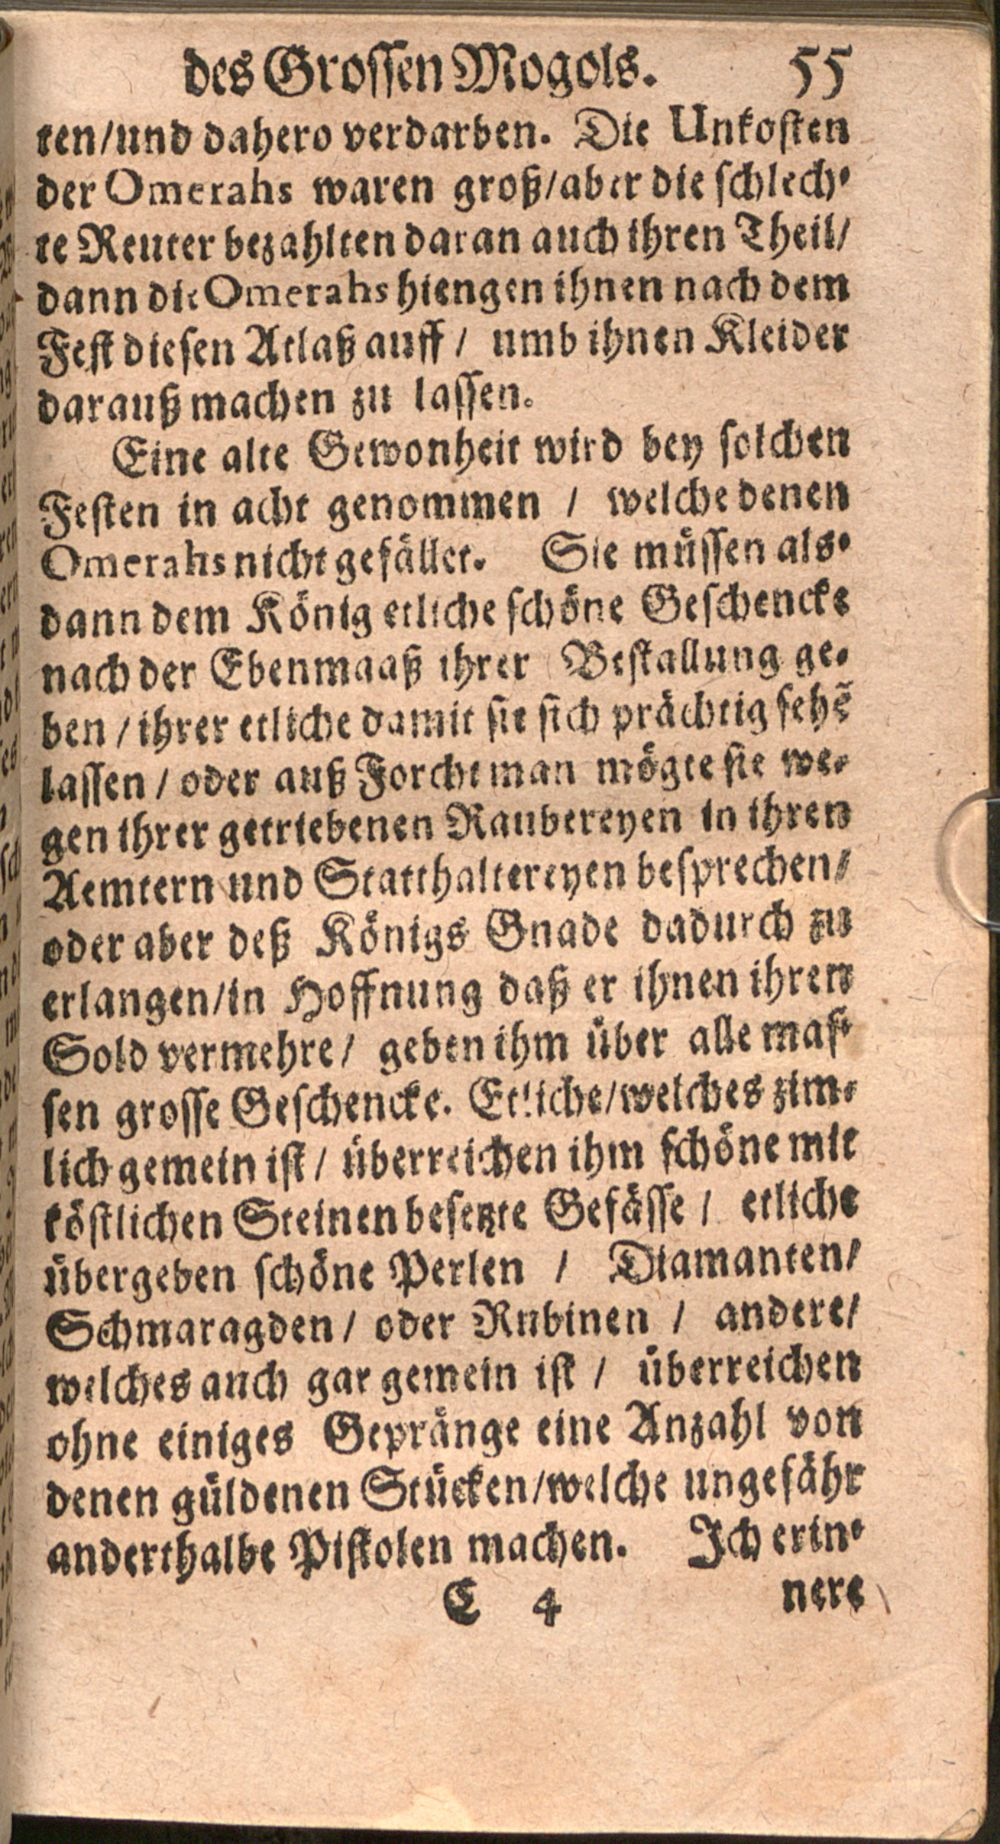 des Grossen Mogols. 55
ten/und dahero verdarben. Die Unkosten
der Omerahs waren groß/aber die schlech-
te Reuter bezahlten daran auch ihren Theil/
dann die Omerahs hiengen ihnen nach dem
Fest diesen Atlaß auff / umb ihnen Kleider
darauß machen zu lassen.
Eine alte Gewonheit wird bey solchen
Festen in acht genommen / welche denen
Omerahs nicht gefället. Sie müssen als-
dann dem König etliche schöne Geschencke
nach der Ebenmaaß ihrer Bestallung ge-
ben / ihrer etliche damit sie sich prächtig sehẽ
lassen / oder auß Forcht man mögte sie we-
gen ihrer getriebenen Raubereyen in ihren
Aemtern und Statthaltereyen besprechen/
oder aber deß Königs Gnade dadurch zu
erlangen/in Hoffnung daß er ihnen ihren
Sold vermehre / geben ihm über alle mas-
sen grosse Geschencke. Etliche/welches zim-
lich gemein ist / überreichen ihm schöne mit
köstlichen Steinen besetzte Gefässe / etliche
übergeben schöne Perlen / Diamanten/
Schmaragden / oder Rubinen / andere/
welches auch gar gemein ist / überreichen
ohne einiges Gepränge eine Anzahl von
denen güldenen Stücken/welche ungefähr
anderthalbe Pistolen machen. Ich erin-
C 4 nere